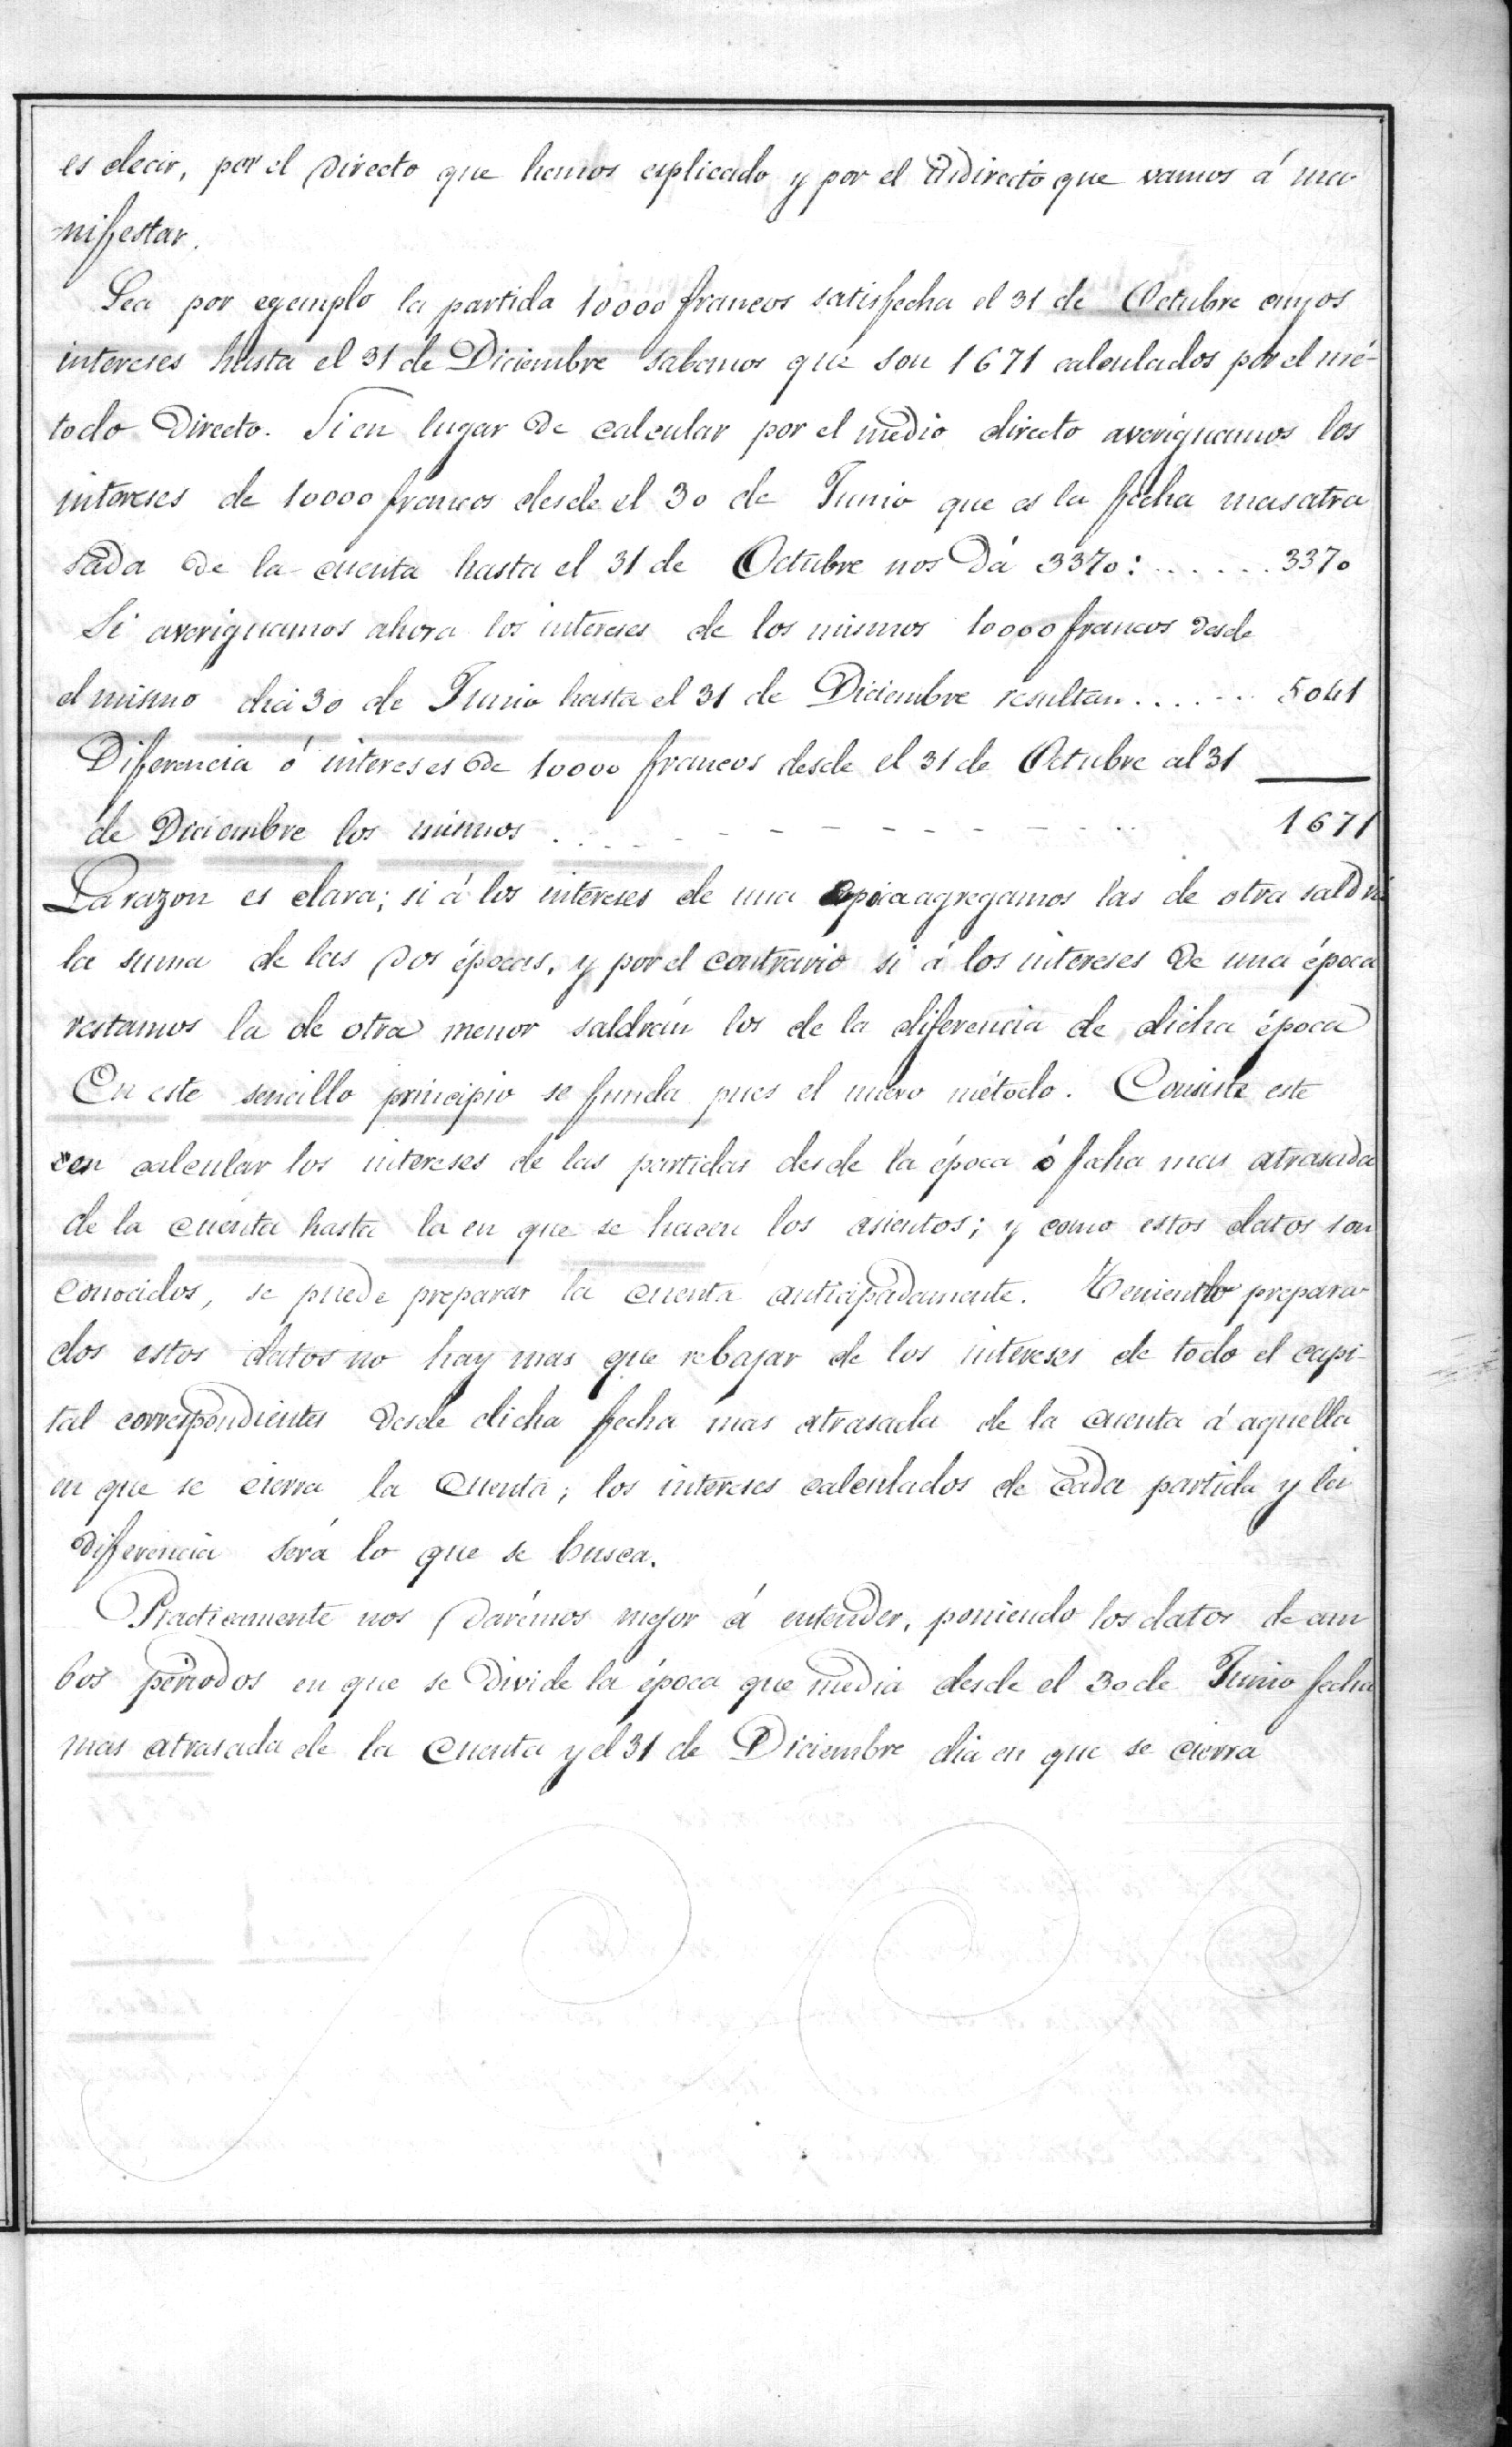 es decir, por el Directo que hemos esplicado y por el Indirecto que vamos á ma-
nifestar.
Sea por egemplo la partida 10000 francos satisfecha el 31 de Octubre cuyos
intereses hasta el 31 de Diciembre sabemos que son 1671 calculados por el mé-
todo Directo. Si en lugar de calcular por el medio directo averiguamos los
intereses de 10000 francos desde el 30 de Junio que es la fecha mas atra
sada de la cuenta hasta el 31 de Octubre nos dá 3370: . . . . . . 3370
Si averiguamos ahora los intereses de los mismos 10000 francos desde
el mismo dia 30 de Junio hasta el 31 de Diciembre resultan . . . . . . 5041
Diferencia ó intereses de 10000 francos desde el 31 de Octubre al 31
de Diciembre los mismos . . . . - - - - - - - - - - 1671
La razon es clara; si á los intereses de una época agregamos las de otra saldrá
la suma de las dos épocas, y por el contrario si á los intereses de una época
restamos la de otra menor saldrán los de la diferencia de dicha época
En este sencillo principio se funda pues el nuevo método. Consiste este
en calcular los intereses de las partidas desde la época ó fecha mas atrasada
de la cuenta hasta la en que se hacen los asientos; y como estos datos son
conocidos, se puede preparar la cuenta anticipadamente. Teniendo prepara-
dos estos datos no hay mas que rebajar de los intereses de todo el capi-
tal correspondientes desde dicha fecha mas atrasada de la cuenta á aquella
en que se cierra la cuenta; los intereses calculados de cada partida y la
differencia será lo que se busca.
Practicamente nos darémos mejor á entender, poniendo los datos de am
bos périodos en que se divide la época que media desde el 30 de Junio fecha
mas atrasada de la cuenta y el 31 de Diciembre dia en que se cierra